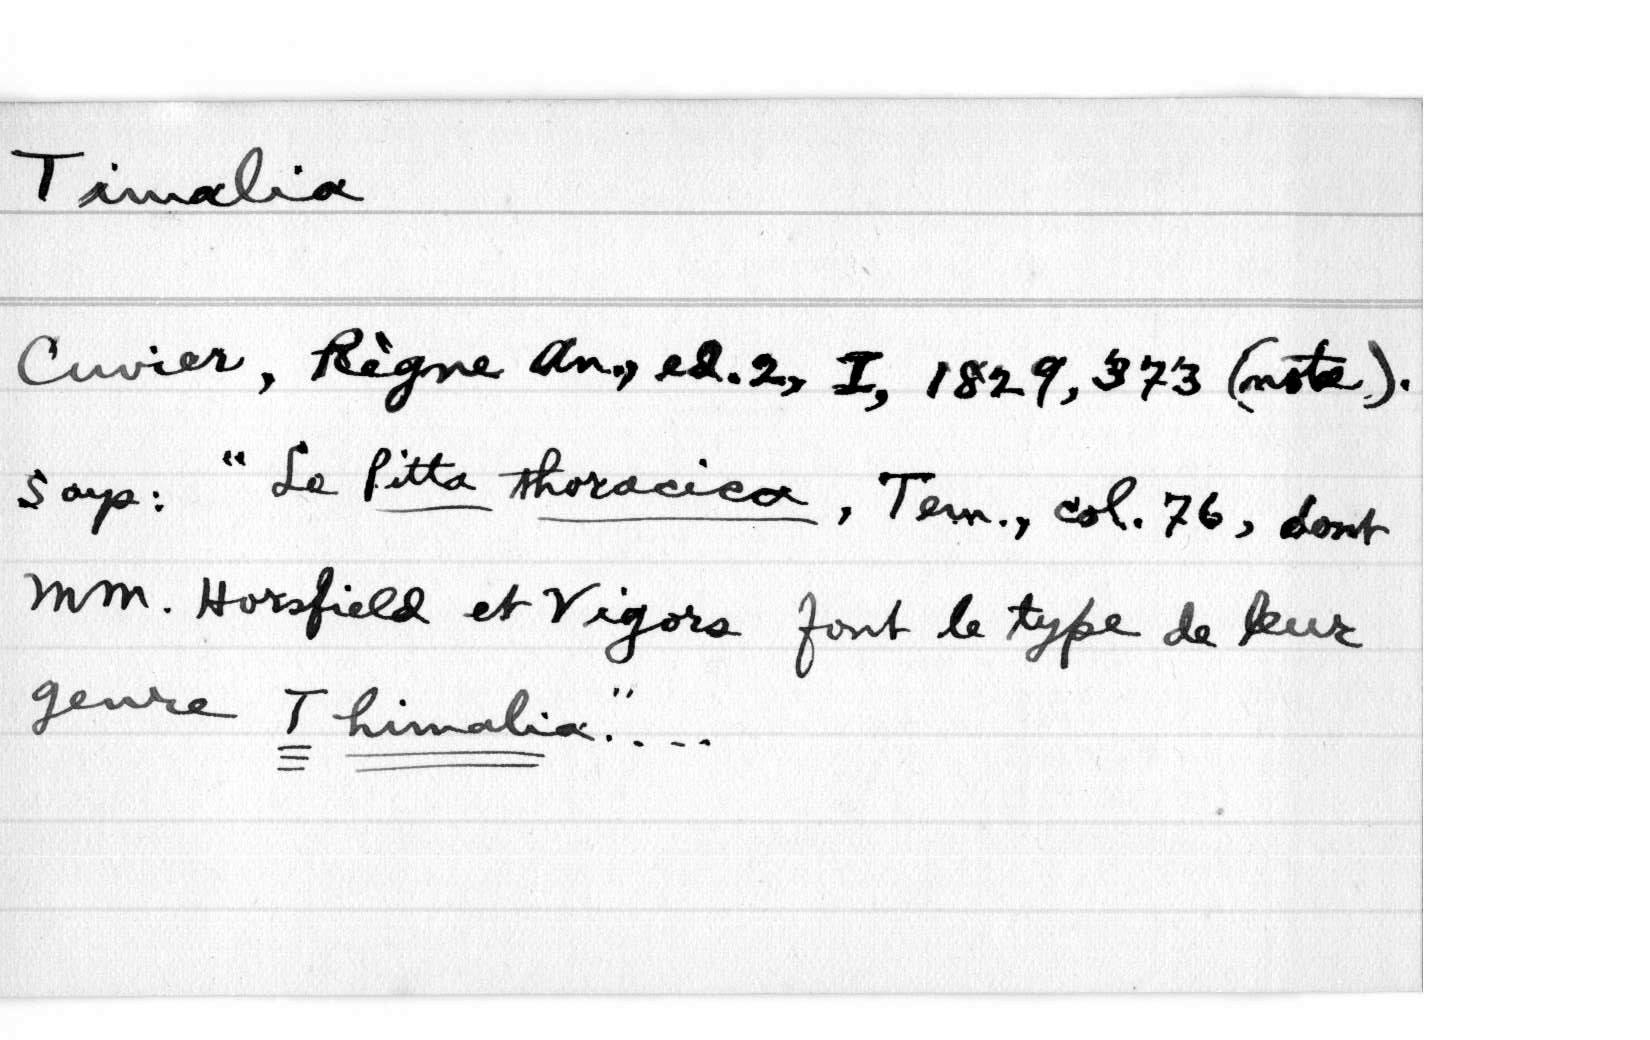 Timalia
Cuvier, Règne An., ed. 2, I, 1829, 373 (note).
says: "Le Pitta thoracica, Tem., col. 76, dont
MM. Horsfield et Vigors font le type de leur
genre Thimalia."....